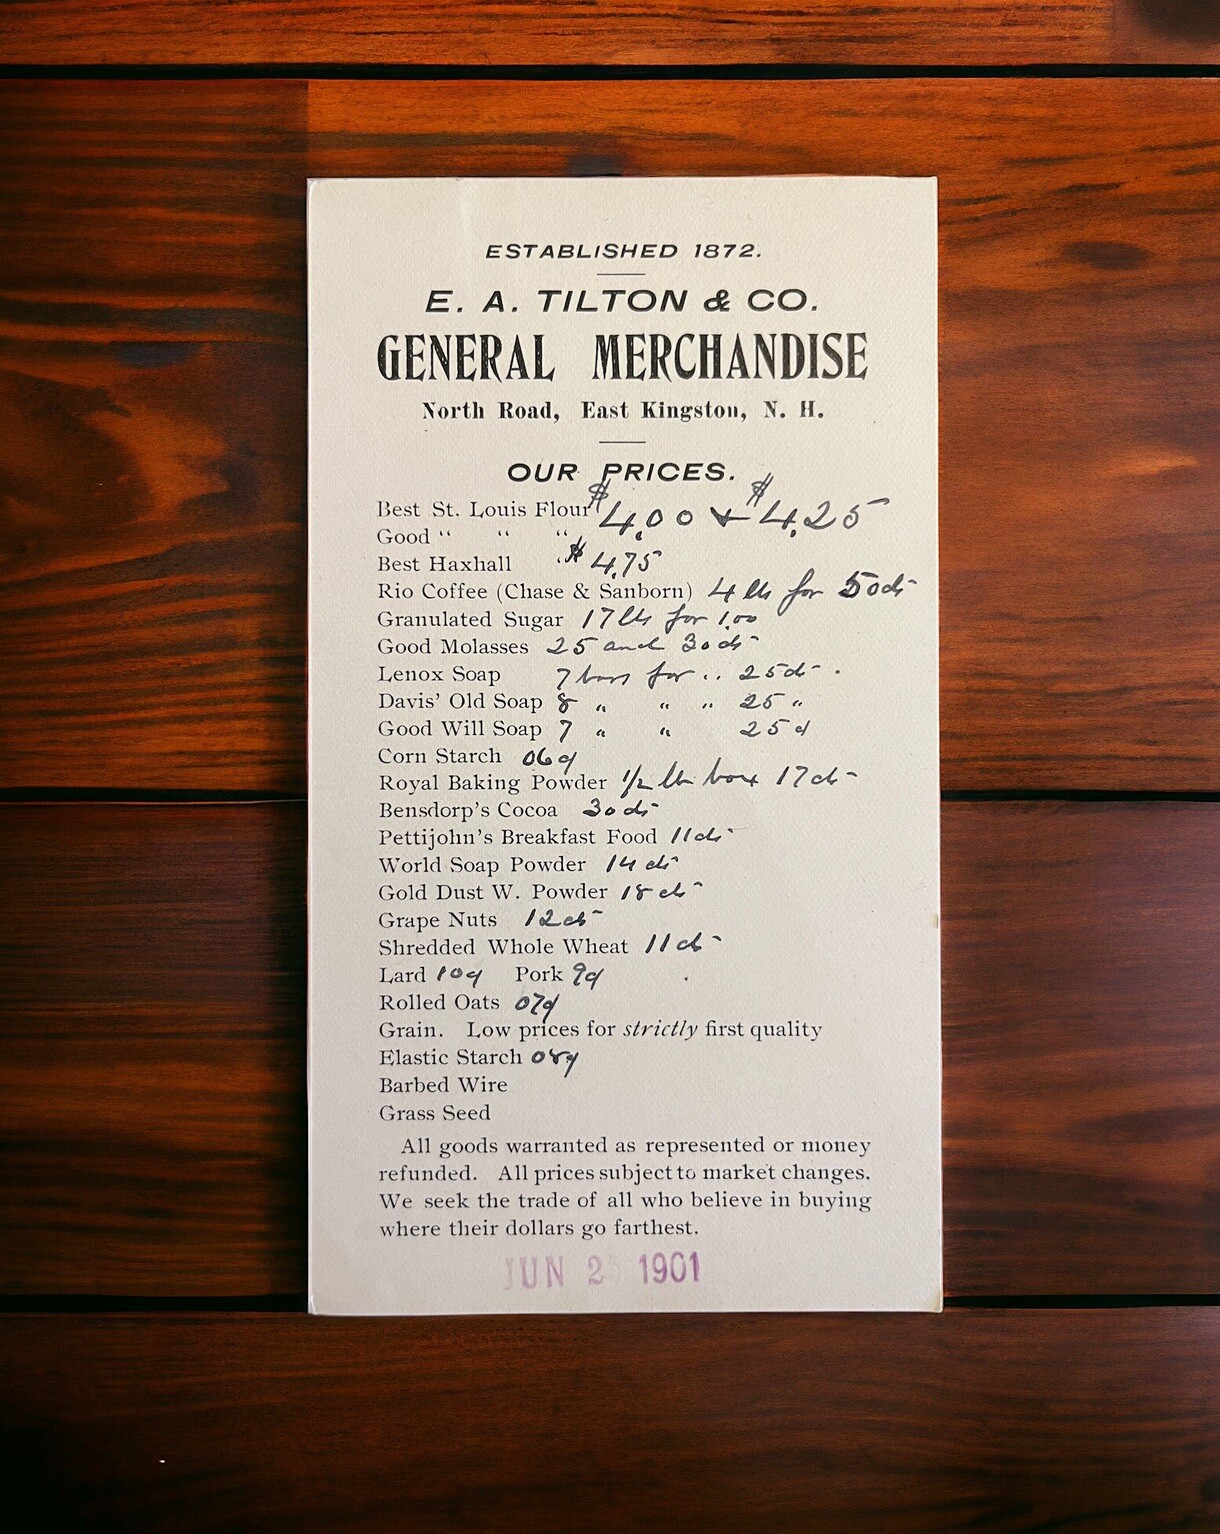 ESTABLISHED 1872.
E. A. TILTON & CO.
GENERAL MERCHANDISE
North Road, East Kingston, N. H.
OUR PRICES.
Best St. Louis Flour $4.00 & $4.25
Good " " "
Best Haxhall " $4.75
Rio Coffee (Chase & Sanborn) 4 lbs for 50cts
Granulated Sugar 17 lbs for 1.00
Good Molasses 25 and 30cts
Lenox Soap 7 bars for .. 25cts.
Davis' Old Soap 8 " " " 25 "
Good Will Soap 7 " " 25 ¢
Corn Starch 06¢
Royal Baking Powder 1/2 lb box 17cts
Bensdorp's Cocoa 30cts
Pettijohn's Breakfast Food 11cts
World Soap Powder 14 cts
Gold Dust W. Powder 18 cts
Grape Nuts 12cts
Shredded Whole Wheat 11cts
Lard 10¢ Pork 9¢
Rolled Oats 07¢
Grain. Low prices for strictly first quality
Elastic Starch 08¢
Barbed Wire
Grass Seed
All goods warranted as represented or money
refunded. All prices subject to market changes.
We seek the trade of all who believe in buying
where their dollars go farthest.
JUN 2 1901